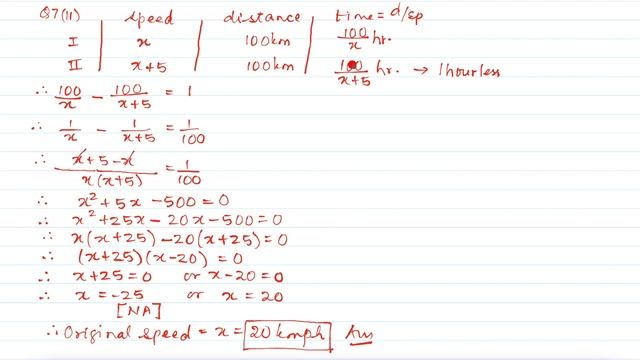 Q7(11) | speed | distance | time = d/sp
I | x | 100km | 100/x hr.
II | x+5 | 100km | 100/(x+5) hr. → 1 hour less
∴ 100/x - 100/(x+5) = 1
∴ 1/x - 1/(x+5) = 1/100
∴ (x+5-x)/(x(x+5)) = 1/100
∴ x² + 5x - 500 = 0
∴ x² + 25x - 20x - 500 = 0
∴ x(x+25) - 20(x+25) = 0
∴ (x+25)(x-20) = 0
∴ x+25=0 or x-20=0
∴ x = -25 or x = 20
[NA]
∴ Original speed = x = 20 kmph Ans